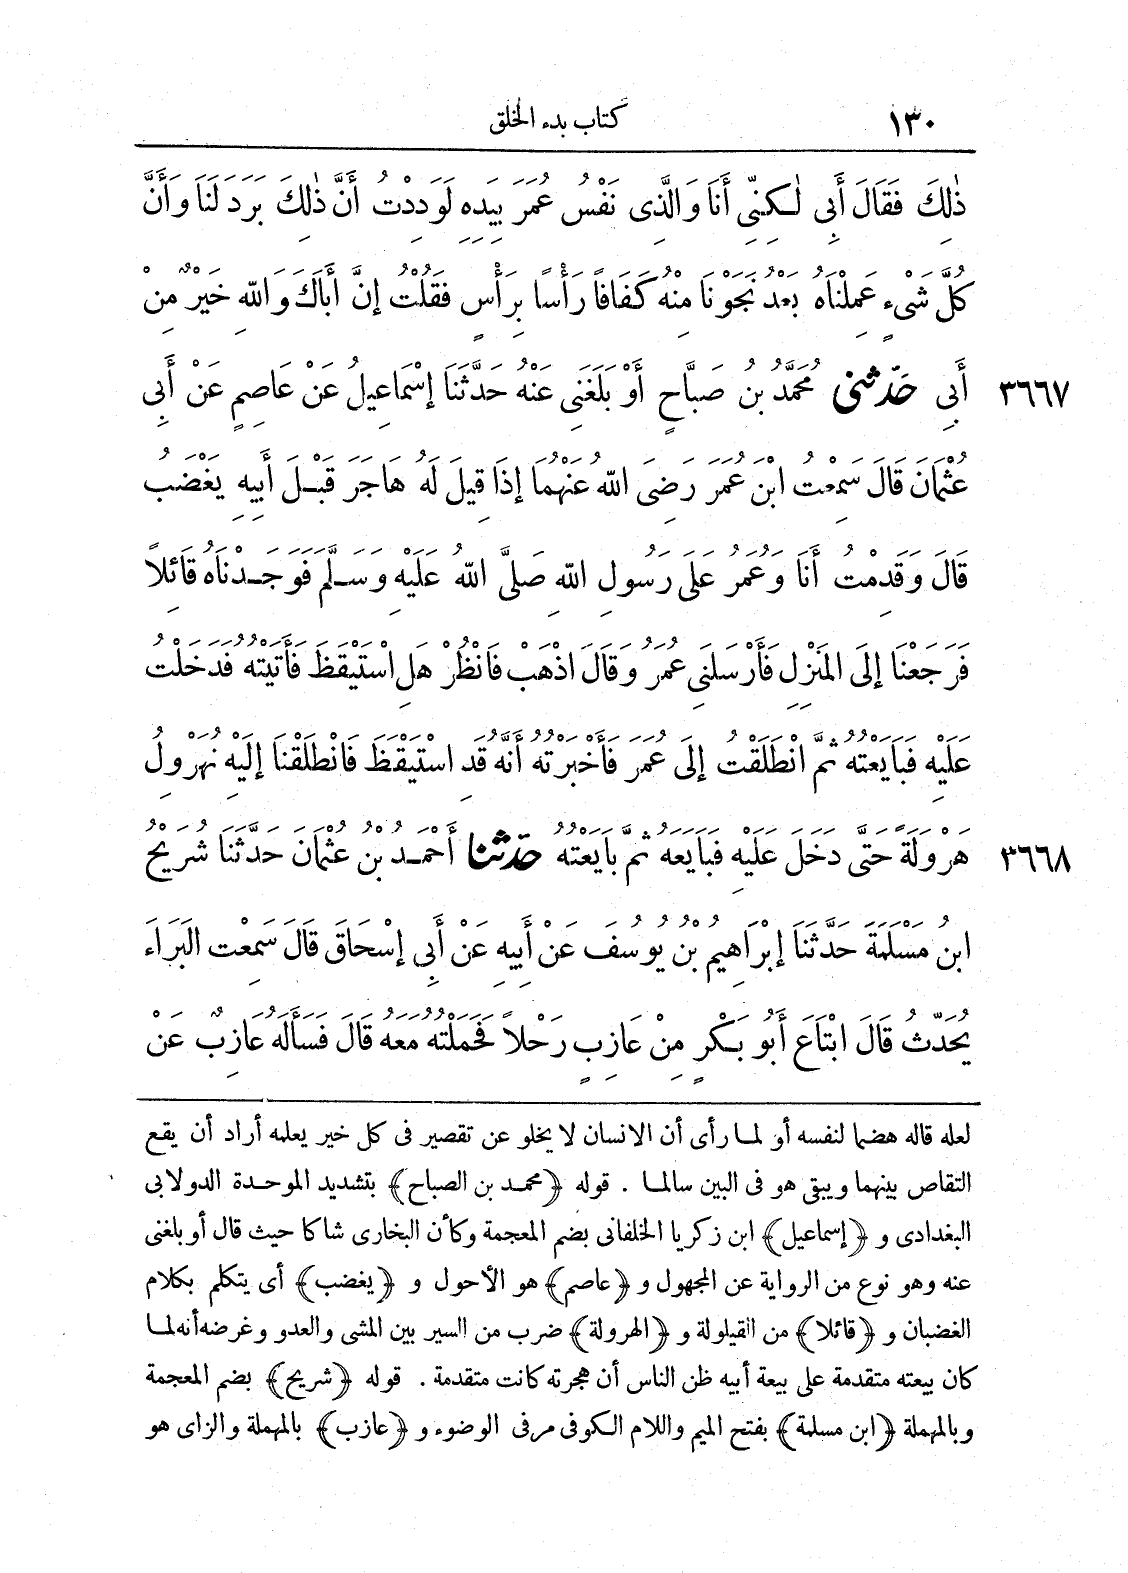 ١٣٠ كتاب بدء الخلق
ذٰلِكَ فَقَالَ أَبِى لٰكِنِّى أَنَا وَالَّذِى نَفْسُ عُمَرَ بِيَدِهِ لَوَدِدْتُ أَنَّ ذٰلِكَ بَرَدَ لَنَا وَأَنَّ
كُلَّ شَىْءٍ عَمِلْنَاهُ بَعْدُ نَجَوْنَا مِنْهُ كَفَافًا رَأْسًا بِرَأْسٍ فَقُلْتُ إِنَّ أَبَاكَ وَاللهِ خَيْرٌ مِنْ
٣٦٦٧ أَبِى حَدَّثَنِى مُحَمَّدُ بْنُ صَبَّاحٍ أَوْ بَلَغَنِى عَنْهُ حَدَّثَنَا إِسْمَاعِيلُ عَنْ عَاصِمٍ عَنْ أَبِى
عُثْمَانَ قَالَ سَمِعْتُ ابْنَ عُمَرَ رَضِىَ اللهُ عَنْهُمَا إِذَا قِيلَ لَهُ هَاجَرَ قَبْلَ أَبِيهِ يَغْضَبُ
قَالَ وَقَدِمْتُ أَنَا وَعُمَرُ عَلَى رَسُولِ اللهِ صَلَّى اللهُ عَلَيْهِ وَسَلَّمَ فَوَجَدْنَاهُ قَائِلًا
فَرَجَعْنَا إِلَى المَنْزِلِ فَأَرْسَلَنِى عُمَرُ وَقَالَ اذْهَبْ فَانْظُرْ هَلِ اسْتَيْقَظَ فَأَتَيْتُهُ فَدَخَلْتُ
عَلَيْهِ فَبَايَعْتُهُ ثُمَّ انْطَلَقْتُ إِلَى عُمَرَ فَأَخْبَرْتُهُ أَنَّهُ قَدِ اسْتَيْقَظَ فَانْطَلَقْنَا إِلَيْهِ نُهَرْوِلُ
٣٦٦٨ هَرْوَلَةً حَتَّى دَخَلَ عَلَيْهِ فَبَايَعَهُ ثُمَّ بَايَعْتُهُ حَدَّثَنَا أَحْمَدُ بْنُ عُثْمَانَ حَدَّثَنَا شُرَيْحُ
ابْنُ مَسْلَمَةَ حَدَّثَنَا إِبْرَاهِيمُ بْنُ يُوسُفَ عَنْ أَبِيهِ عَنْ أَبِى إِسْحَاقَ قَالَ سَمِعْتُ البَرَاءَ
يُحَدِّثُ قَالَ ابْتَاعَ أَبُو بَكْرٍ مِنْ عَازِبٍ رَحْلًا فَحَمَلْتُهُ مَعَهُ قَالَ فَسَأَلَهُ عَازِبٌ عَنْ
لعله قاله هضما لنفسه أو لما رأى أن الانسان لا يخلو عن تقصير فى كل خير يعلمه أراد أن يقع
التقاص بينهما ويبقى هو فى البين سالما . قوله ﴿محمد بن الصباح﴾ بتشديد الموحدة الدولابى
البغدادى و ﴿إسماعيل﴾ ابن زكريا الخلفانى بضم المعجمة وكأن البخارى شاكا حيث قال أو بلغنى
عنه وهو نوع من الرواية عن المجهول و ﴿عاصم﴾ هو الأحول و ﴿يغضب﴾ أى يتكلم بكلام
الغضبان و ﴿قائلا﴾ من القيلولة و ﴿الهرولة﴾ ضرب من السير بين المشى والعدو وغرضه أنه لما
كان بيعته متقدمة على بيعة أبيه ظن الناس أن هجرته كانت متقدمة . قوله ﴿شريح﴾ بضم المعجمة
وبالمهملة ﴿ابن مسلمة﴾ بفتح الميم واللام الكوفى مر فى الوضوء و ﴿عازب﴾ بالمهملة والزاى هو